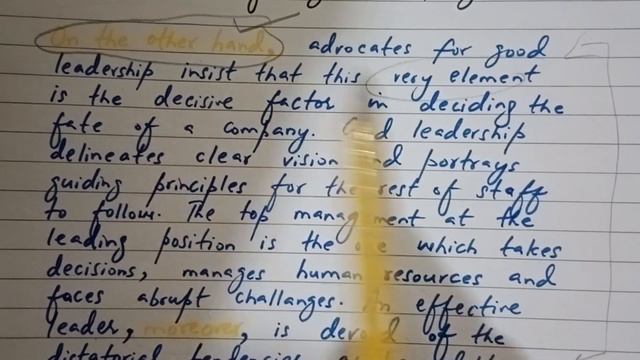 On the other hand, advocates for good
leadership insist that this very element
is the decisive factor in deciding the
fate of a company. leadership
delineates clear vision and portrays
guiding principles for the rest of staff
to follow. The top management at the
leading position is the one which takes
decisions, manages human resources and
faces abrupt challanges. An effective
leader, moreover, is devoid of the
dictatorial tendencies